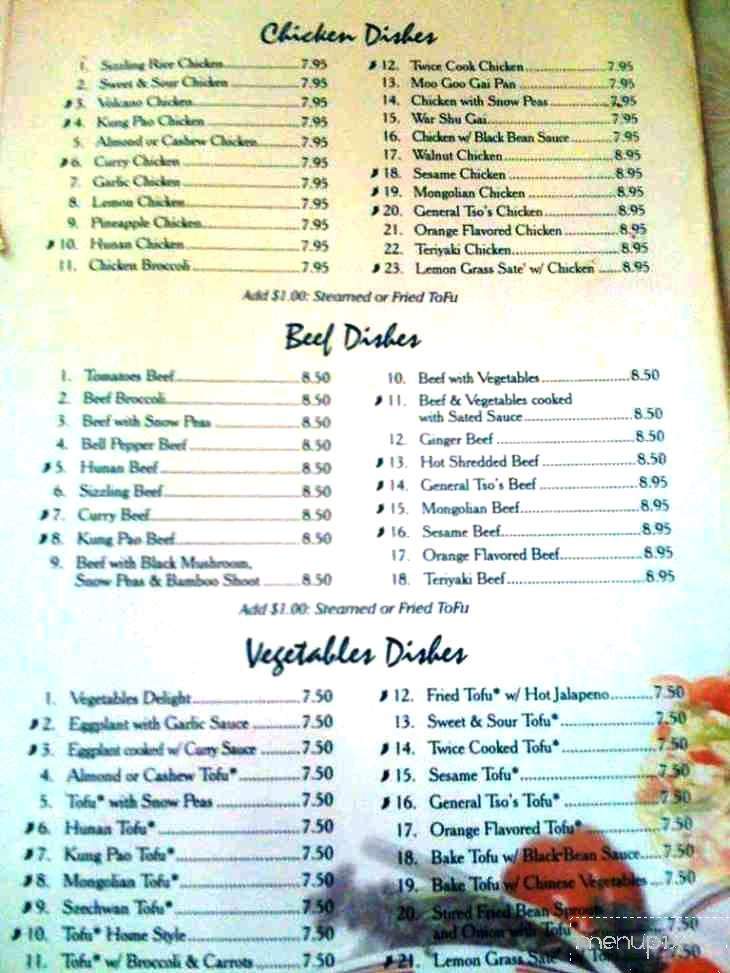 Chicken Dishes
1. Sizzling Rice Chicken 7.95
2. Sweet & Sour Chicken 7.95
3. Volcano Chicken 7.95
4. Kung Pao Chicken 7.95
5. Almond or Cashew Chicken 7.95
6. Curry Chicken 7.95
7. Garlic Chicken 7.95
8. Lemon Chicken 7.95
9. Pineapple Chicken 7.95
10. Hunan Chicken 7.95
11. Chicken Broccoli 7.95
12. Twice Cook Chicken 7.95
13. Moo Goo Gai Pan 7.95
14. Chicken with Snow Peas 7.95
15. War Shu Gai 7.95
16. Chicken w/ Black Bean Sauce 7.95
17. Walnut Chicken 8.95
18. Sesame Chicken 8.95
19. Mongolian Chicken 8.95
20. General Tso's Chicken 8.95
21. Orange Flavored Chicken 8.95
22. Teriyaki Chicken 8.95
23. Lemon Grass Sate' w/ Chicken 8.95
Add $1.00: Steamed or Fried ToFu
Beef Dishes
1. Tomatoes Beef 8.50
2. Beef Broccoli 8.50
3. Beef with Snow Peas 8.50
4. Bell Pepper Beef 8.50
5. Hunan Beef 8.50
6. Sizzling Beef 8.50
7. Curry Beef 8.50
8. Kung Pao Beef 8.50
9. Beef with Black Mushroom,
Snow Peas & Bamboo Shoot 8.50
10. Beef with Vegetables 8.50
11. Beef & Vegetables cooked
with Sated Sauce 8.50
12. Ginger Beef 8.50
13. Hot Shredded Beef 8.50
14. General Tso's Beef 8.95
15. Mongolian Beef 8.95
16. Sesame Beef 8.95
17. Orange Flavored Beef 8.95
18. Teriyaki Beef 8.95
Add $1.00: Steamed or Fried ToFu
Vegetables Dishes
1. Vegetables Delight 7.50
2. Eggplant with Garlic Sauce 7.50
3. Eggplant cooked w/ Curry Sauce 7.50
4. Almond or Cashew Tofu* 7.50
5. Tofu* with Snow Peas 7.50
6. Hunan Tofu* 7.50
7. Kung Pao Tofu* 7.50
8. Mongolian Tofu* 7.50
9. Szechwan Tofu* 7.50
10. Tofu* Home Style 7.50
11. Tofu* w/ Broccoli & Carrots 7.50
12. Fried Tofu* w/ Hot Jalapeno 7.50
13. Sweet & Sour Tofu* 7.50
14. Twice Cooked Tofu* 7.50
15. Sesame Tofu* 7.50
16. General Tso's Tofu* 7.50
17. Orange Flavored Tofu* 7.50
18. Bake Tofu w/ Black Bean Sauce 7.50
19. Bake Tofu w/ Chinese Vegetables 7.50
20. Stired Fried Bean
and Onion with Tofu 7.50
21. Lemon Grass Sate' w/ 7.50
menupix